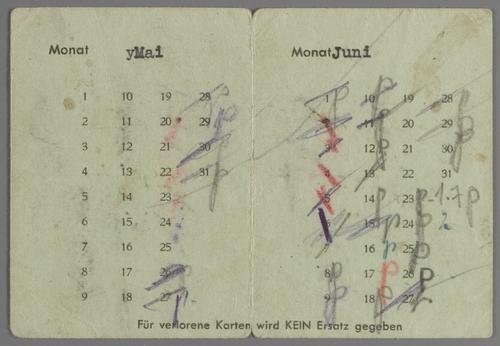 Monat yMai
1 10 19 28
2 11 20 29
3 12 21 30
4 13 22 31
5 14 23
6 15 24
7 16 25
8 17 26
9 18 27
Monat Juni
1 10 19 28
2 11 20 29
3 12 21 30
4 13 22 31
5 14 23 p-1.7p
6 15 24
7 16 25
8 17 26 p
9 18 27
Für verlorene Karten wird KEIN Ersatz gegeben